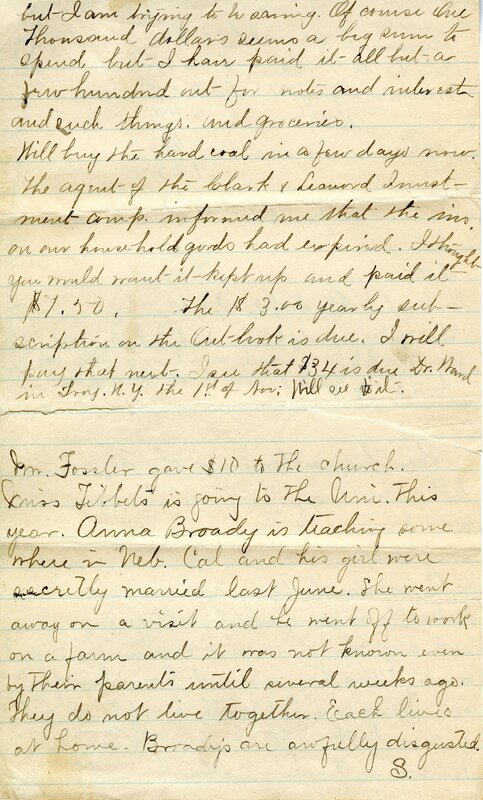 but I am trying to be saving. Of course One
Thousand dollars seems a big sum to
spend but I have paid it all but a
few hundred out for notes and interest
and such things. and groceries.
Will buy the hard coal in a few days now.
The agent of the Clark & Leanord Invest-
ment comp. informed me that the ins.
on our household goods had expired. I thought
you would want it kept up and paid it
$7.50. The $3.00 yearly sub-
scription on the Outlook is due. I will
pay that next. I see that $34 is due Dr. Ward
in Troy. N.Y. the 1st of Nov. Will see to it.
Dr. Fossler gave $10 to the church.
Russ Tibbets is going to the Uni. this
year. Anna Broady is teaching some
where in Neb. Cal and his girl were
secretly married last June. She went
away on a visit and he went off to work
on a farm and it was not known even
by their parents until several weeks ago.
They do not live together. Each lives
at home. Broadys are awfully disgusted.
S.